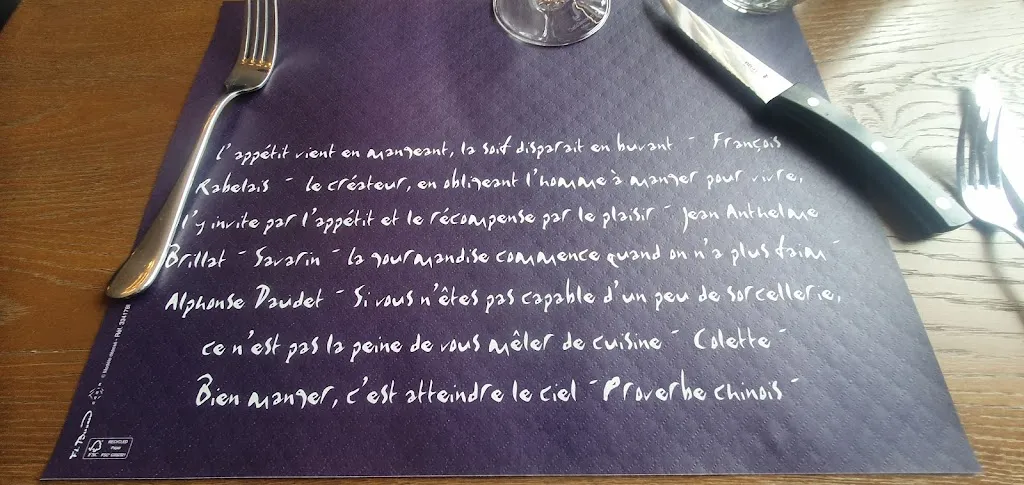 L'appétit vient en mangeant, la soif disparait en buvant - François
Rabelais - le créateur, en obligeant l'homme à manger pour vivre,
l'y invite par l'appétit et le récompense par le plaisir - Jean Anthelme
Brillat - Savarin - la gourmandise commence quand on n'a plus faim -
Alphonse Daudet - Si vous n'êtes pas capable d'un peu de sorcellerie,
ce n'est pas la peine de vous mêler de cuisine - Colette -
Bien manger, c'est atteindre le ciel - Proverbe chinois -
RECYCLED
Paper
FSC